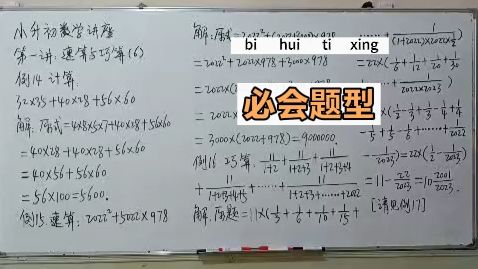 小升初数学讲座
第一讲:速算与巧算(6)
例14 计算.
32×35+40×28+56×60
解:原式=4×8×5×7+40×28+56×60
=40×28+40×28+56×60
=40×56+56×60
=56×100=5600.
例15.速算:2022²+5022×978
解:原式=2022²+(2022+3000)×978
=2022²+2022×978+3000×978
=2022×(
=2022×
=3000×(2022+978)=9000000.
例16 巧算:11/(1+2)+11/(1+2+3)+11/(1+2+3+4)
+11/(1+2+3+4+5)+……+11/(1+2+3+……+2022)
解:原题=11×(1/3+1/6+1/10+1/15+
……+1/((1+2022)×2022×1/2))
=22×(1/6+1/12+1/20+1/30
+1/(2022×2023))
×(1/2-1/3+1/3-1/4+1/4
-1/5+1/5-1/6+……+1/2022
-1/2023)=22×(1/2-1/2023)
=11-22/2023=10 2001/2023
[请见例17]
bi hui ti xing
必会题型